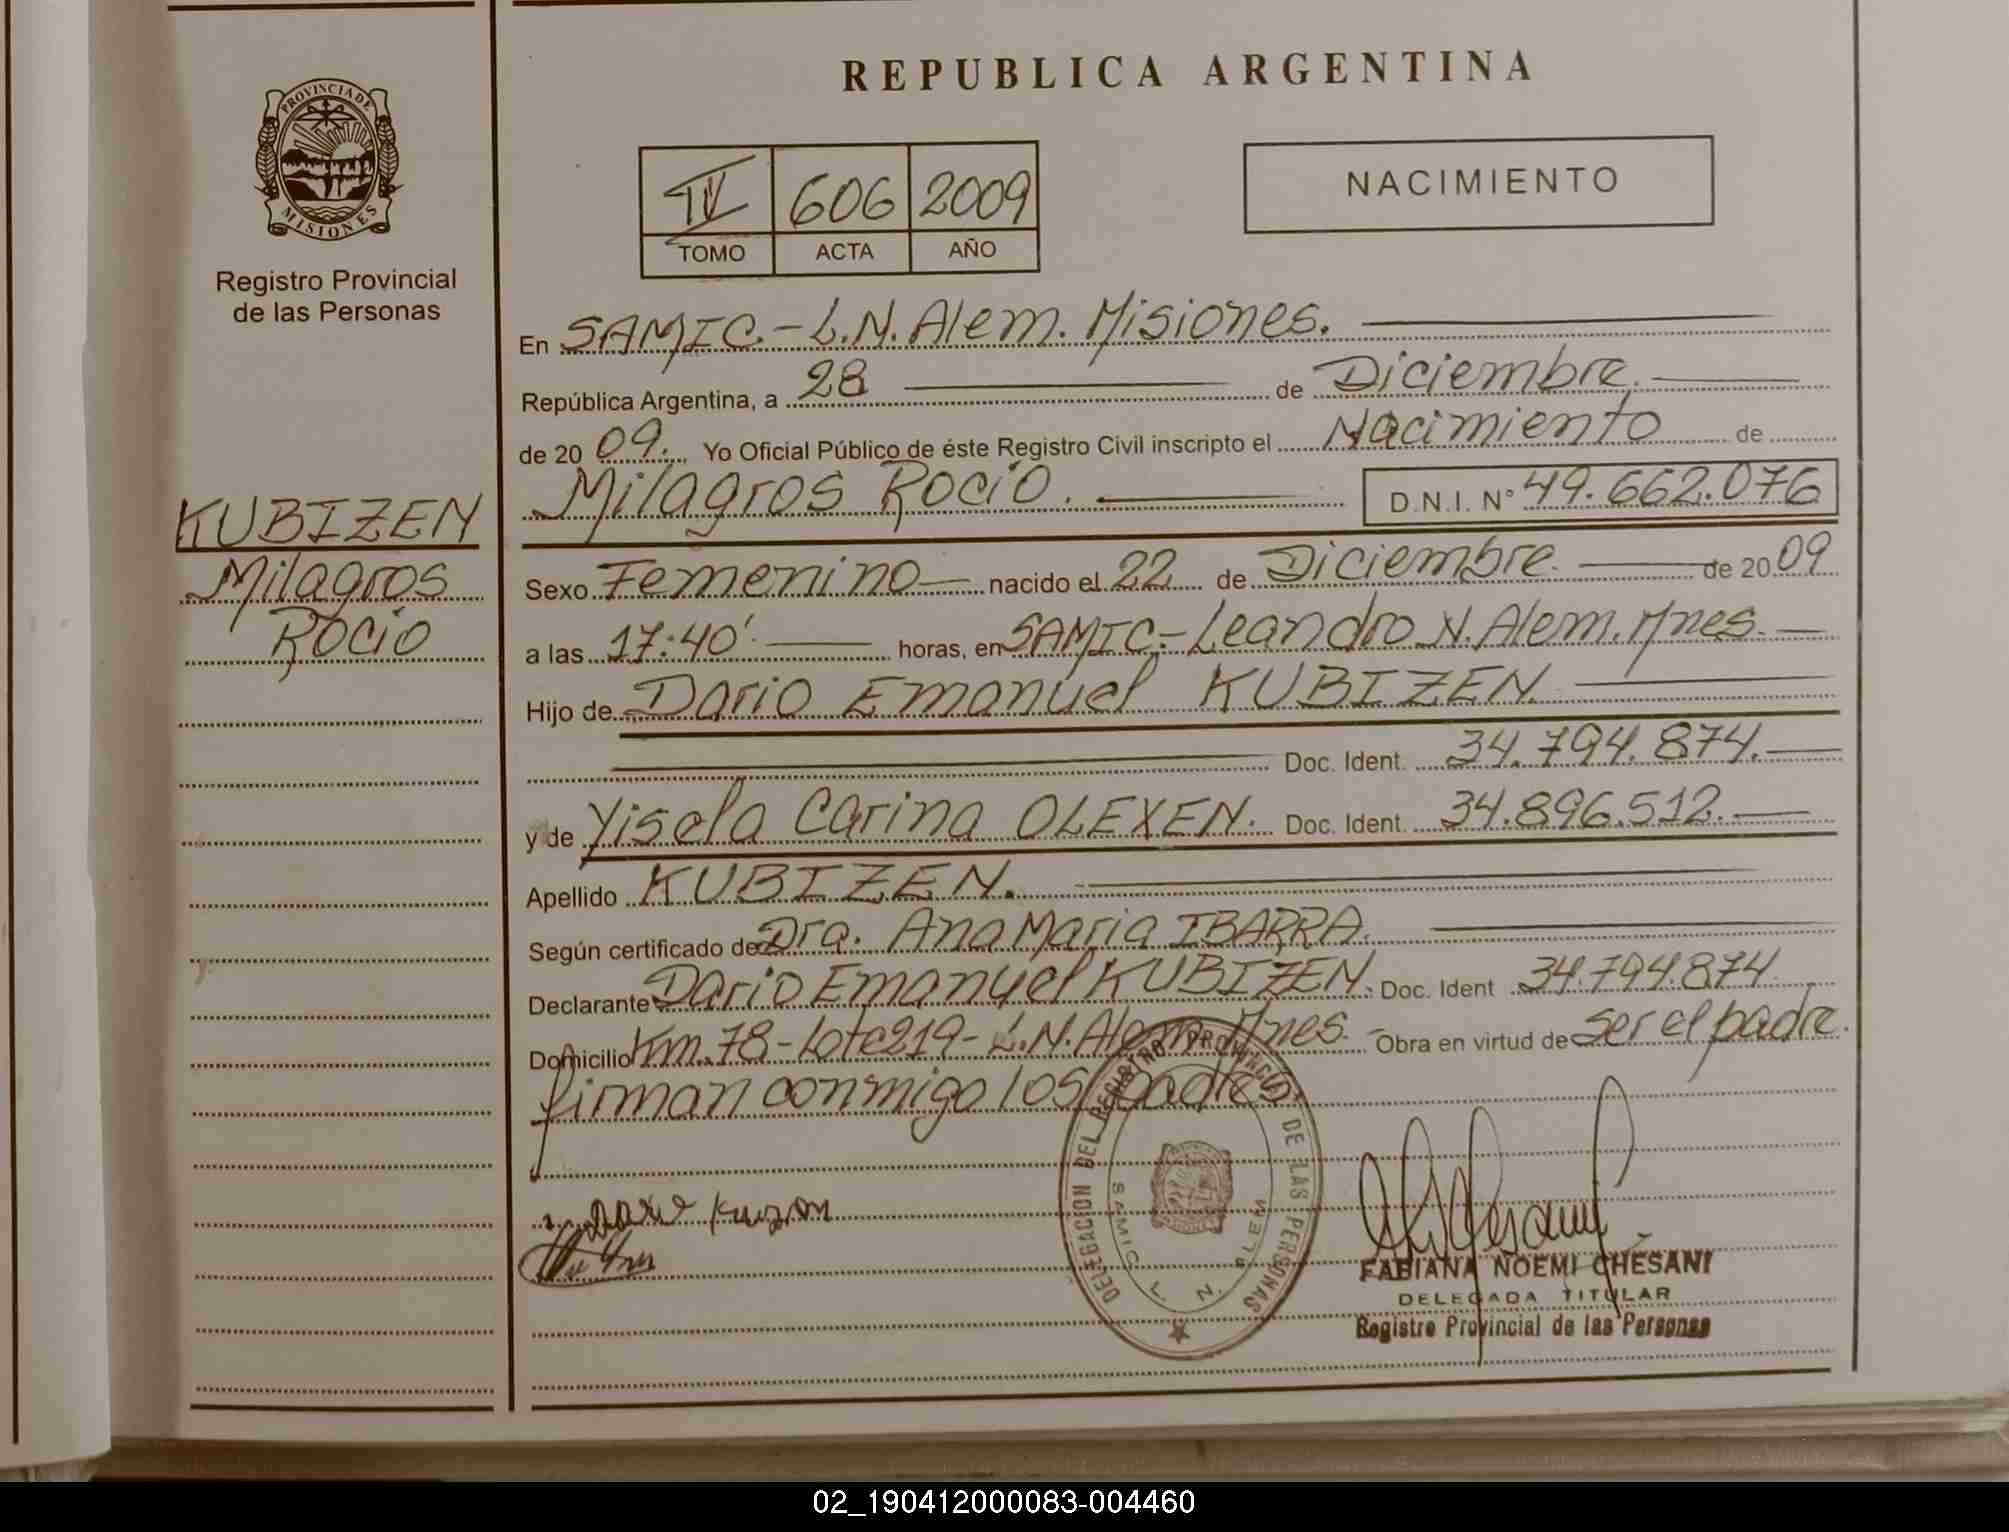 REPUBLICA ARGENTINA
PROVINCIA DE MISIONES
Registro Provincial
de las Personas
IV 606 2009
TOMO ACTA AÑO
NACIMIENTO
En SAMIC.- L.N. Alem. Misiones.
República Argentina, a 28 de Diciembre.
de 20 09. Yo Oficial Público de éste Registro Civil inscripto el Nacimiento de
Milagros Rocio. D.N.I. N° 49.662.076
KUBIZEN
Milagros
Rocio
Sexo Femenino nacido el 22 de Diciembre. de 20 09
a las 17:40'. horas, en SAMIC.- Leandro N. Alem. Mnes.
Hijo de Dario Emanuel KUBIZEN.
Doc. Ident. 34.794.874.
y de Yisela Carina OLEXEN. Doc. Ident. 34.896.512.
Apellido KUBIZEN.
Según certificado de Dra. Ana Maria IBARRA.
Declarante Dario Emanuel KUBIZEN. Doc. Ident 34.794.874.
Domicilio Km. 78 - Lote 219 - L.N. Alem Mnes. - Obra en virtud de ser el padre.
firman conmigo los padres.
DELEGACION DEL REGISTRO PROVINCIAL DE LAS PERSONAS
SAMIC L. N. ALEM
FABIANA NOEMI CHESANI
DELEGADA TITULAR
Registro Provincial de las Personas
02_190412000083-004460